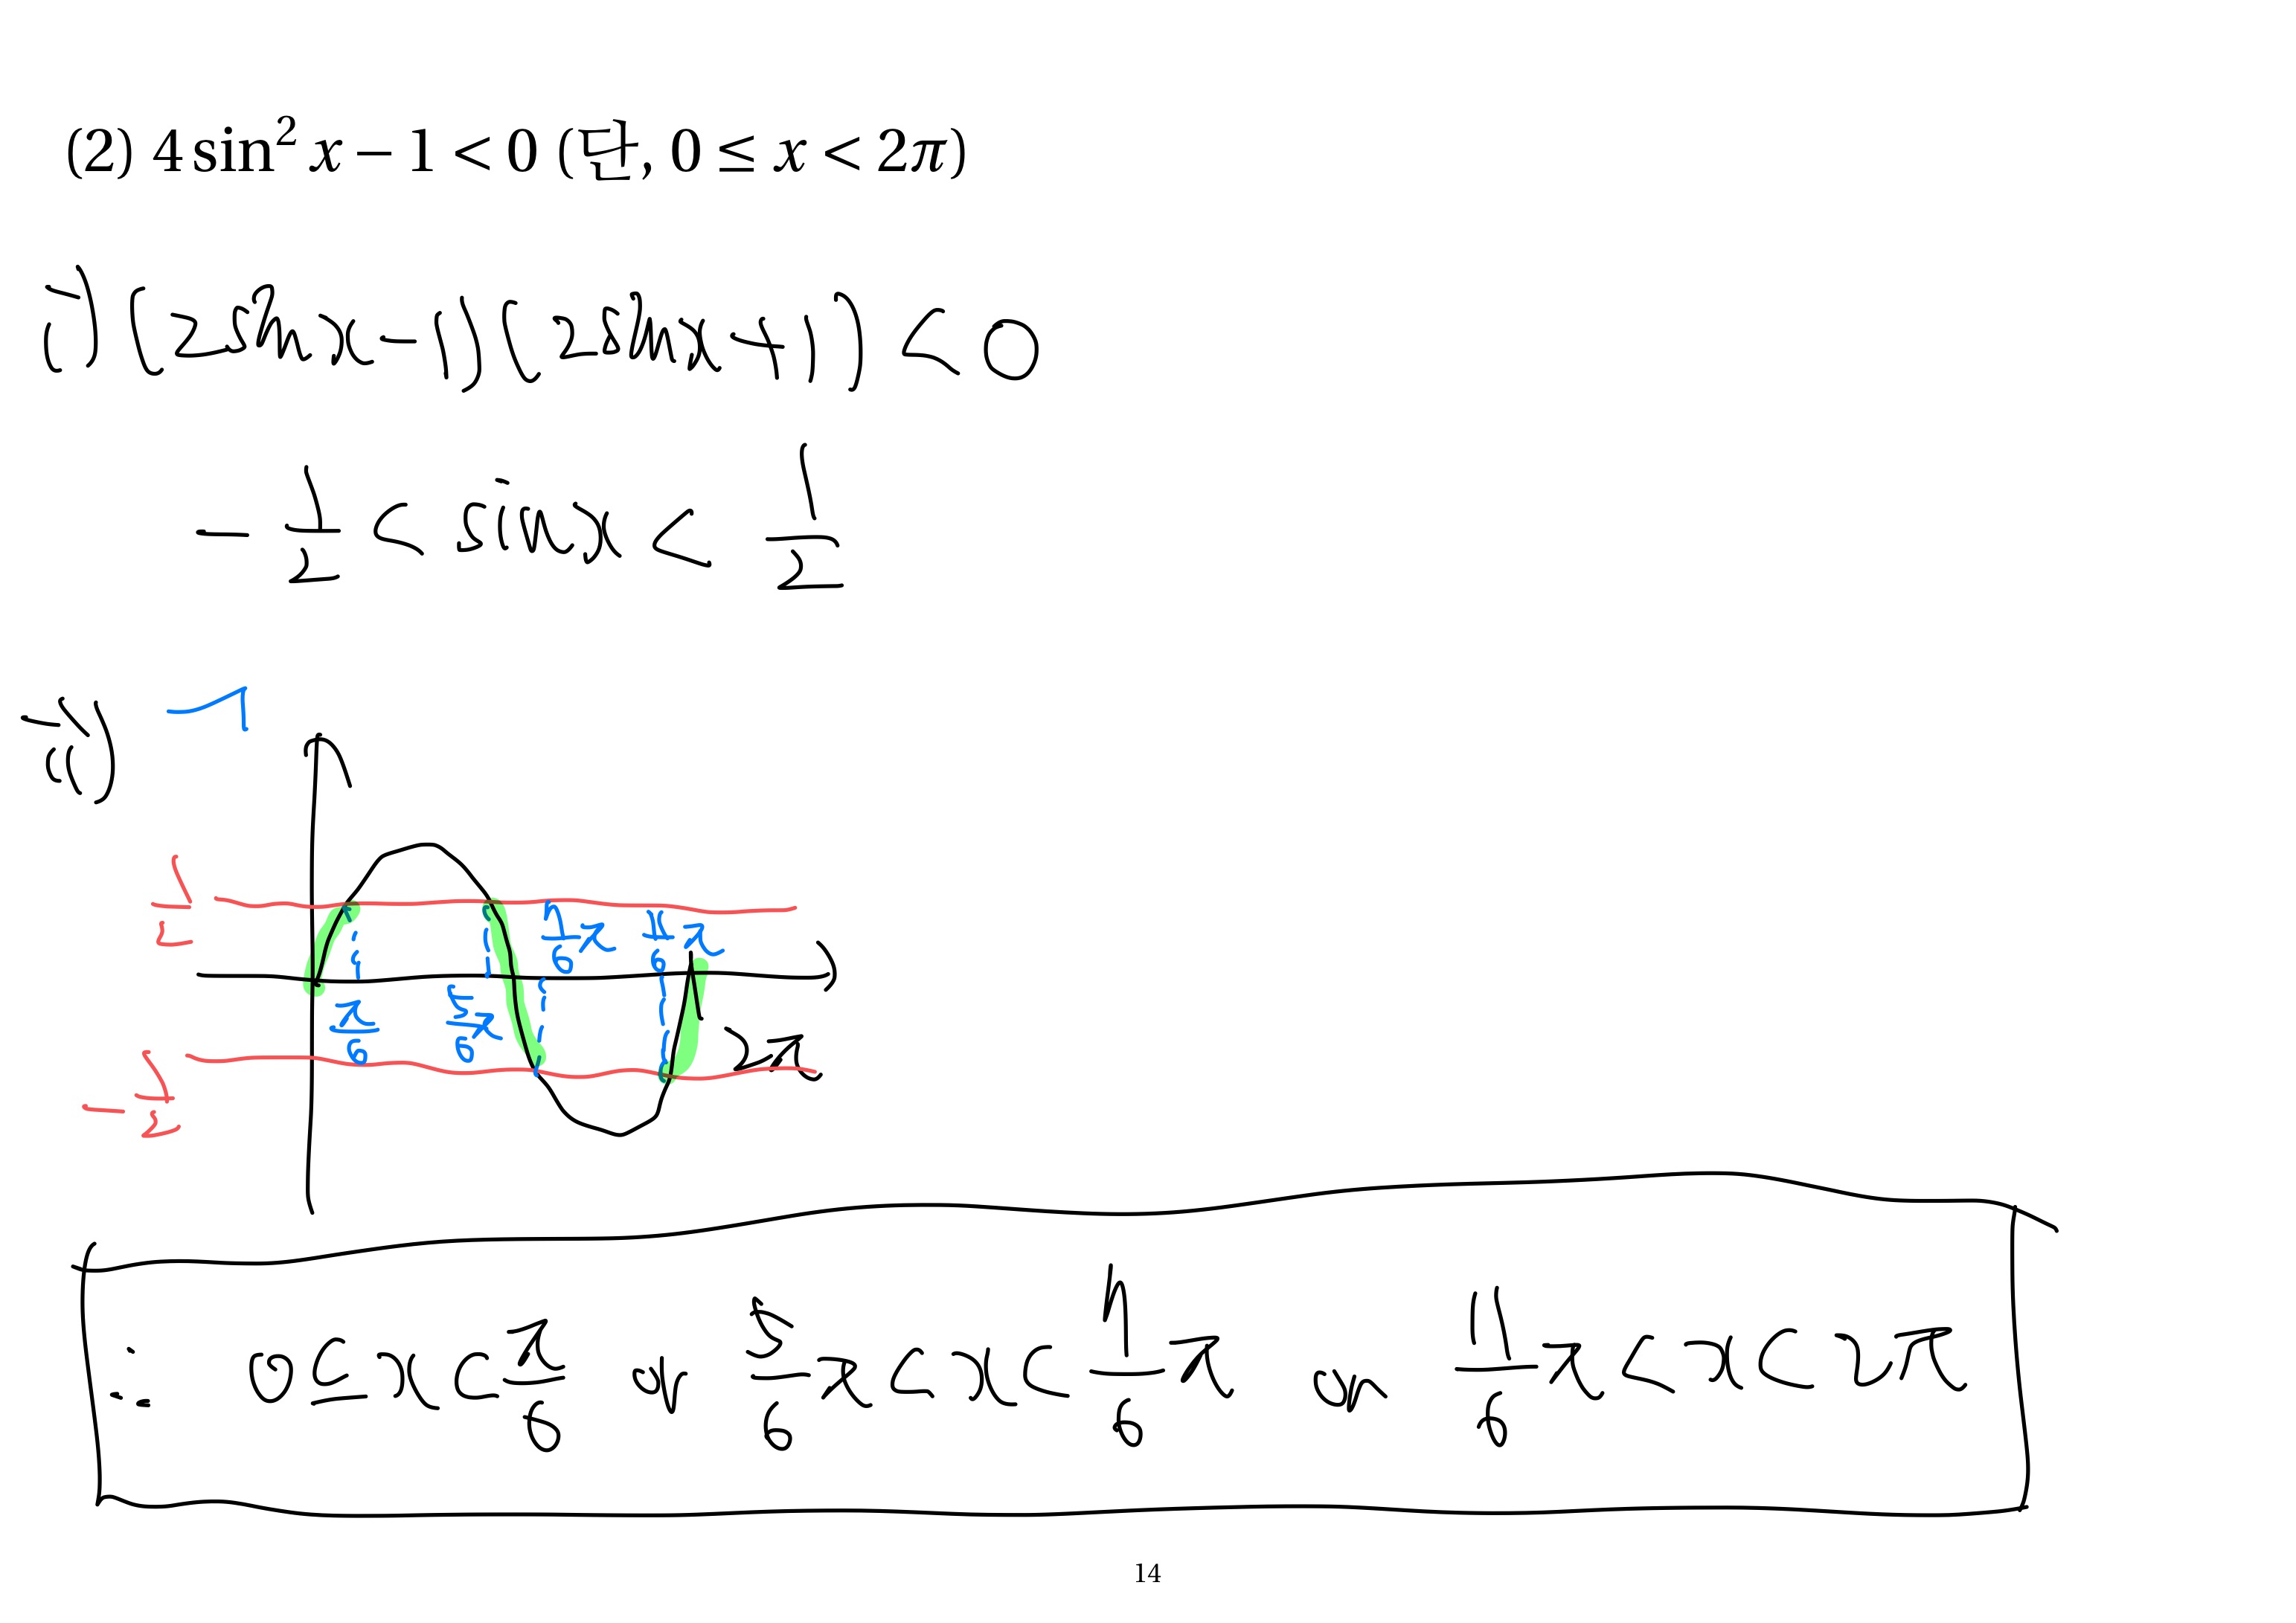 (2) 4 sin² x − 1 < 0 (단, 0 ≤ x < 2π)
i) (2sinx − 1)(2sinx + 1) < 0
− 1/2 < sinx < 1/2
ii)
1/2
7/6 π 11/6 π
π/6 5/6 π
2π
− 1/2
∴ 0 ≤ x < π/6 or 5/6 π < x < 7/6 π or 11/6 π < x < 2π
14